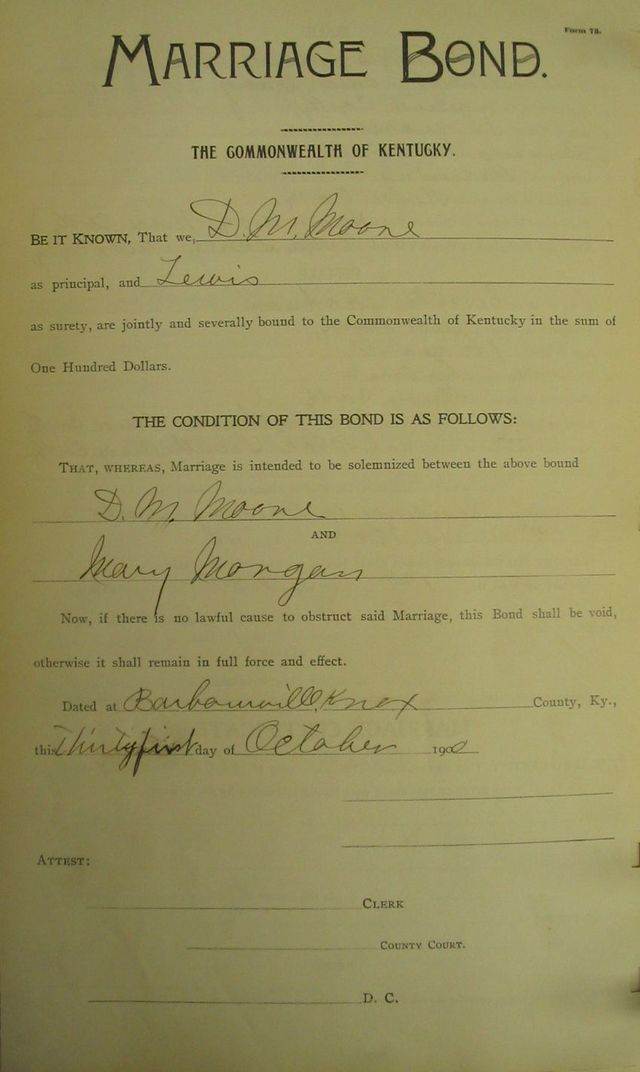 Form 78.
MARRIAGE BOND.
THE COMMONWEALTH OF KENTUCKY.
BE IT KNOWN, That we, D. M. Moore
as principal, and Lewis
as surety, are jointly and severally bound to the Commonwealth of Kentucky in the sum of
One Hundred Dollars.
THE CONDITION OF THIS BOND IS AS FOLLOWS:
THAT, WHEREAS, Marriage is intended to be solemnized between the above bound
D. M. Moore
AND
Mary Morgan
Now, if there is no lawful cause to obstruct said Marriage, this Bond shall be void,
otherwise it shall remain in full force and effect.
Dated at Barbourville, Knox County, Ky.,
this Thirty first day of October 1900
ATTEST:
CLERK
COUNTY COURT.
D. C.